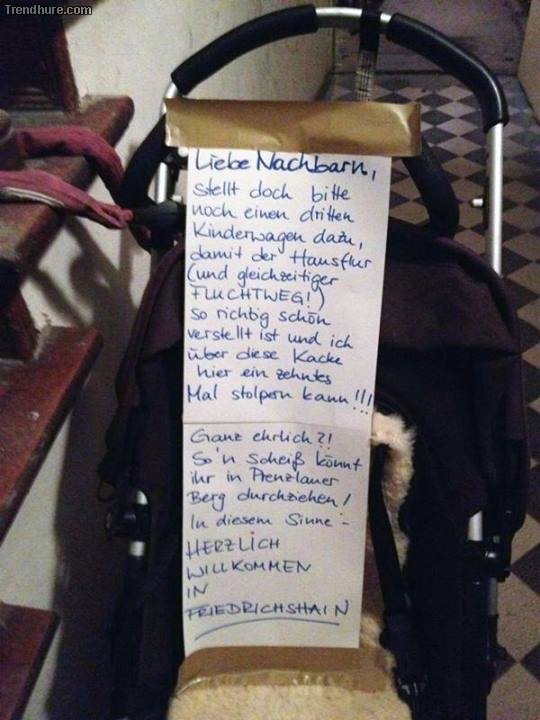 Trendhure.com
Liebe Nachbarn,
stellt doch bitte
noch einen dritten
Kinderwagen dazu,
damit der Hausflur
(und gleichzeitiger
FLUCHTWEG!)
so richtig schön
verstellt ist und ich
über diese Kacke
hier ein zehntes
Mal stolpern kann!!!
Ganz ehrlich?!
So'n Scheiß könnt
ihr in Prenzlauer
Berg durchziehen!
In diesem Sinne:
HERZLICH
WILLKOMMEN
IN
FRIEDRICHSHAIN